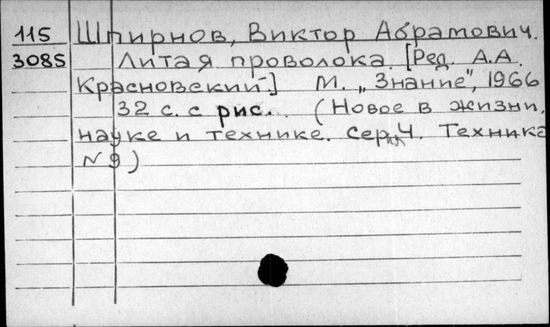 115 Шпирнов, Виктор Абрамович.
3085 Литая проволока. [Ред. А.А.
Красновский.] М. „Знание", 1966
32 с. с рис. (Новое в жизни,
науке и технике. Серия 4. Техника
№9)